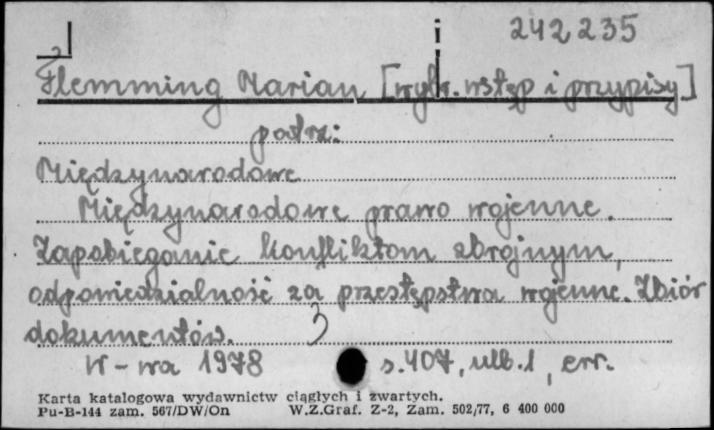 242235
Flemming Marian [wybr. wstęp i przypisy]
patrz:
Międzynarodowe
Międzynarodowe prawo wojenne.
Zapobieganie konfliktom zbrojnym,
odpowiedzialność za przestępstwa wojenne. Zbiór
dokumentów.
W-wa 1978 s. 407, ulb. 1, err.
Karta katalogowa wydawnictw ciągłych i zwartych.
Pu-B-144 zam. 567/DW/On W.Z.Graf. Z-2, Zam. 502/77, 6 400 000